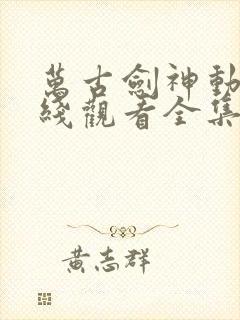 萬古劍神動
綫觀看全集
黃志群